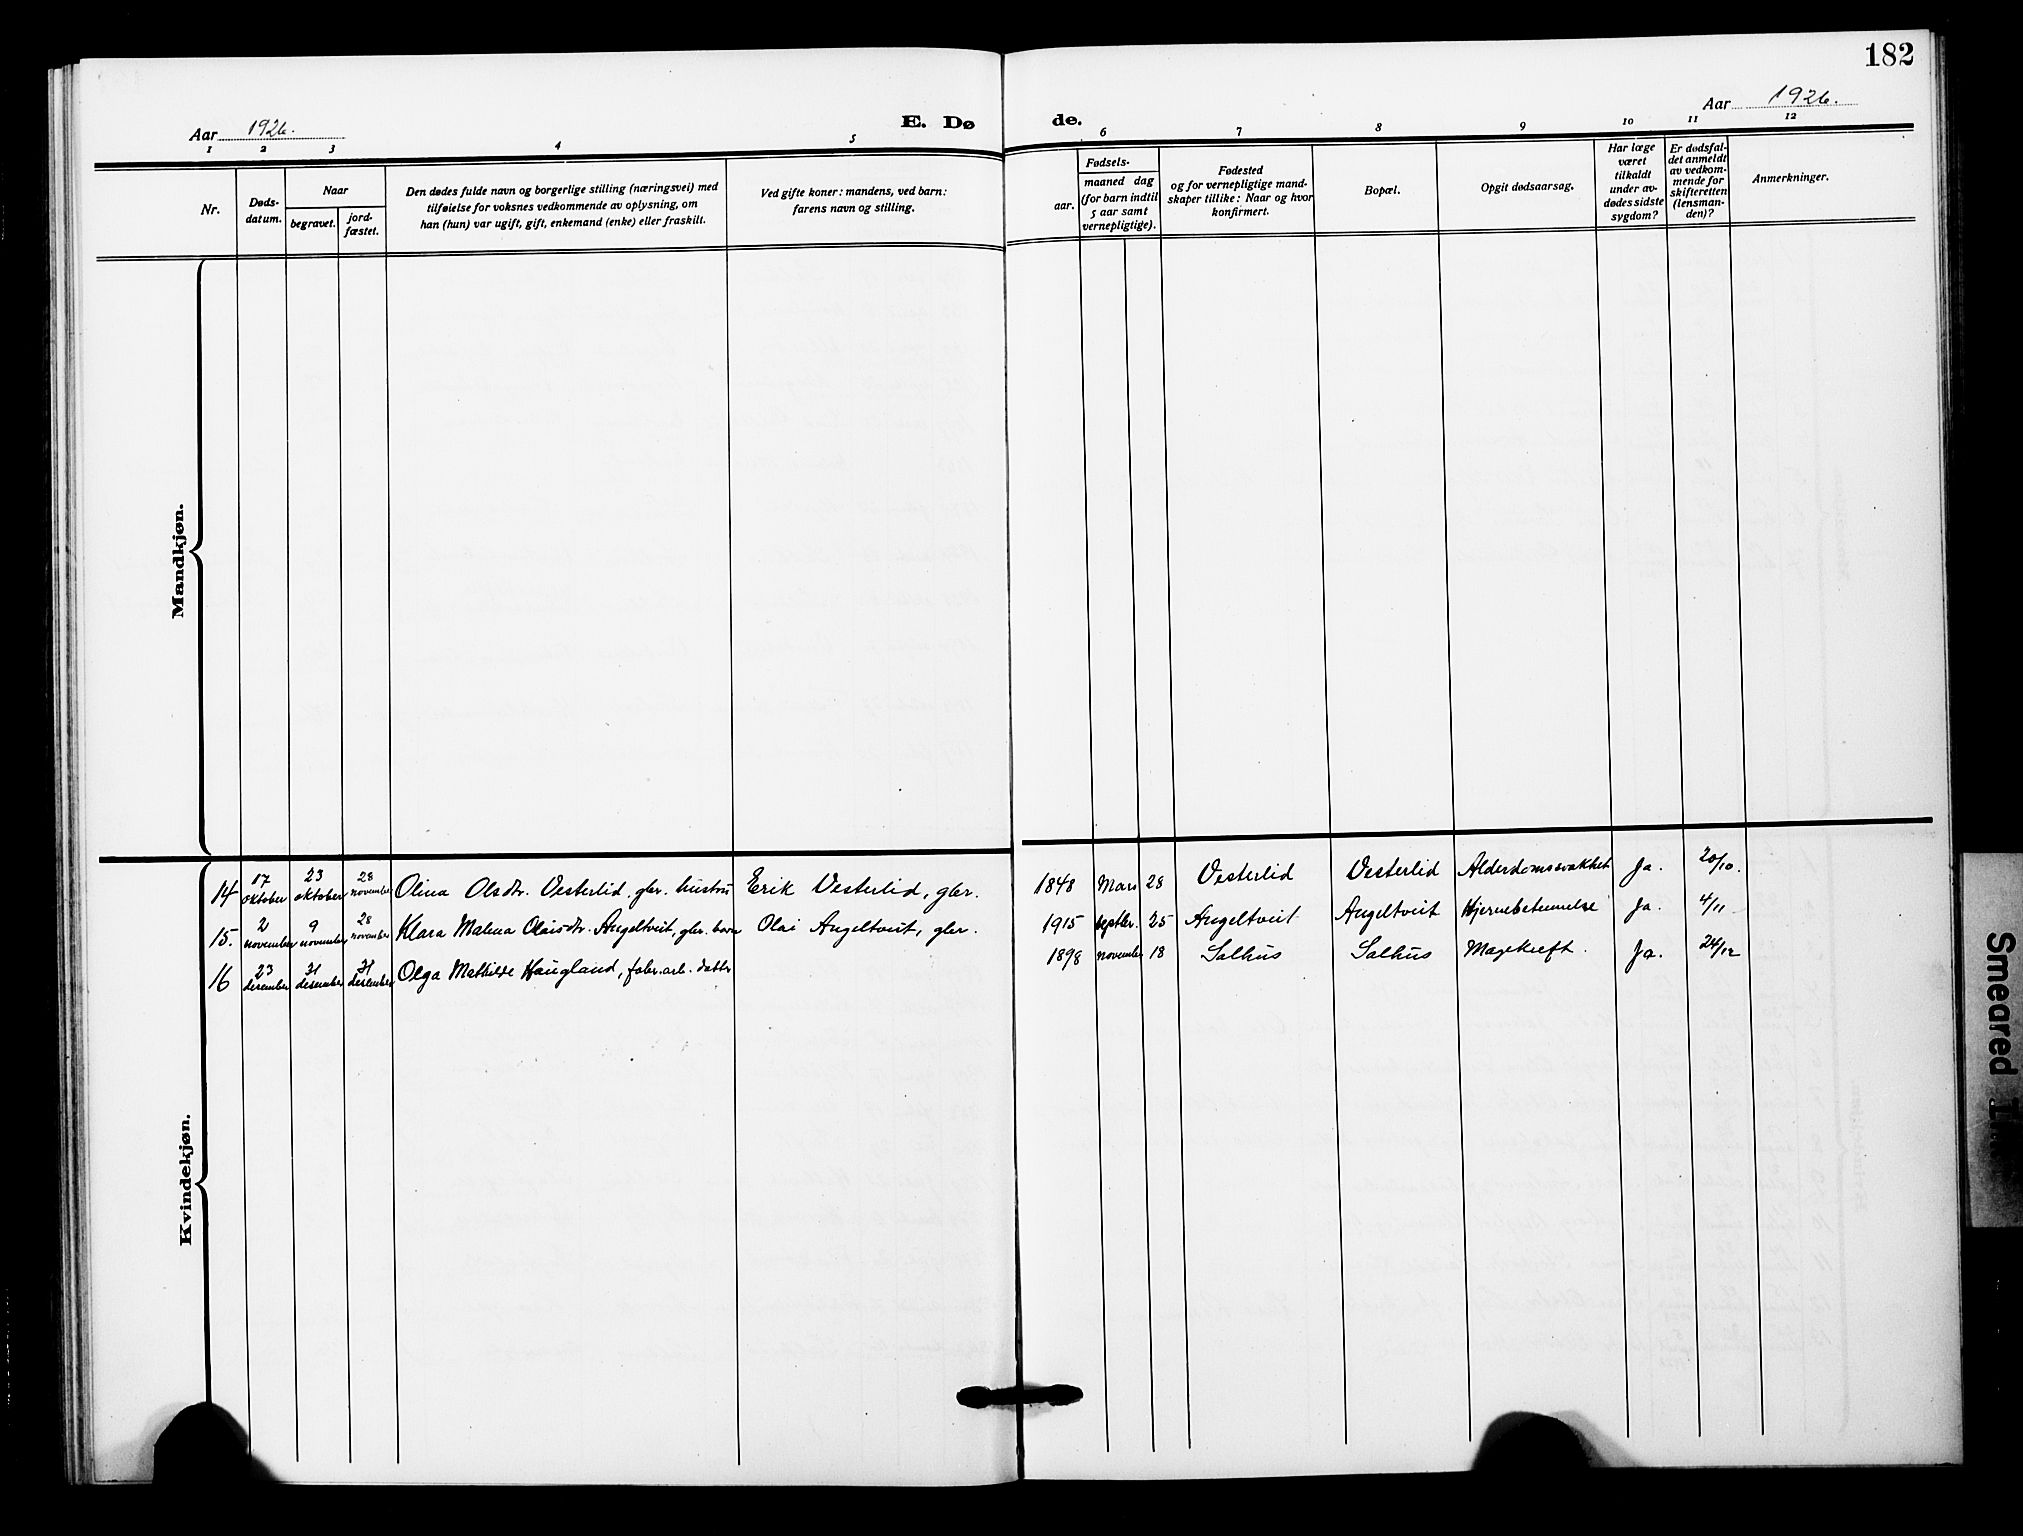 182
Aar 1926.
E. Dø
de.
Aar 1926.
1 2 3 4 5 6 7 8 9 10 11 12
Nr.
Døds-
datum.
Naar
begravet.
jord-
fæstet.
Den dødes fulde navn og borgerlige stilling (næringsvei) med
tilføielse for voksnes vedkommende av oplysning, om
han (hun) var ugift, gift, enkemand (enke) eller fraskilt.
Ved gifte koner: mandens, ved barn:
farens navn og stilling.
Fødsels-
aar.
maaned dag
(for barn indtil
5 aar samt
vernepligtige).
Fødested
og for vernepligtige mand-
skaper tillike: Naar og hvor
konfirmert.
Bopæl.
Opgit dødsaarsag.
Har læge
været
tilkaldt
under av-
dødes sidste
sygdom?
Er dødsfal-
det anmeldt
av vedkom-
mende for
skifteretten
(lensman-
den)?
Anmerkninger.
Mandkjøn.
Kvindekjøn.
14 17 oktober 23 oktober 28 november Olina Olsdtr. Vesterlid, gbr. hustru Erik Vesterlid, gbr. 1848 Mars 28 Vesterlid Vesterlid Alderdomssvakhet Ja. 20/10.
15. 2 november 9 november 28 november Klara Malena Olaisdtr. Angeltveit, gbr. barn Olai Angeltveit, gbr. 1915 septbr. 25 Angeltveit Angeltveit Hjernebetennelse Ja. 4/11
16 23 desember 31 desember 31 desember Olga Mathilde Haugland, fabr. arb. datter 1898 november 18 Salhus Salhus Magekreft. Ja. 24/12
Smeared